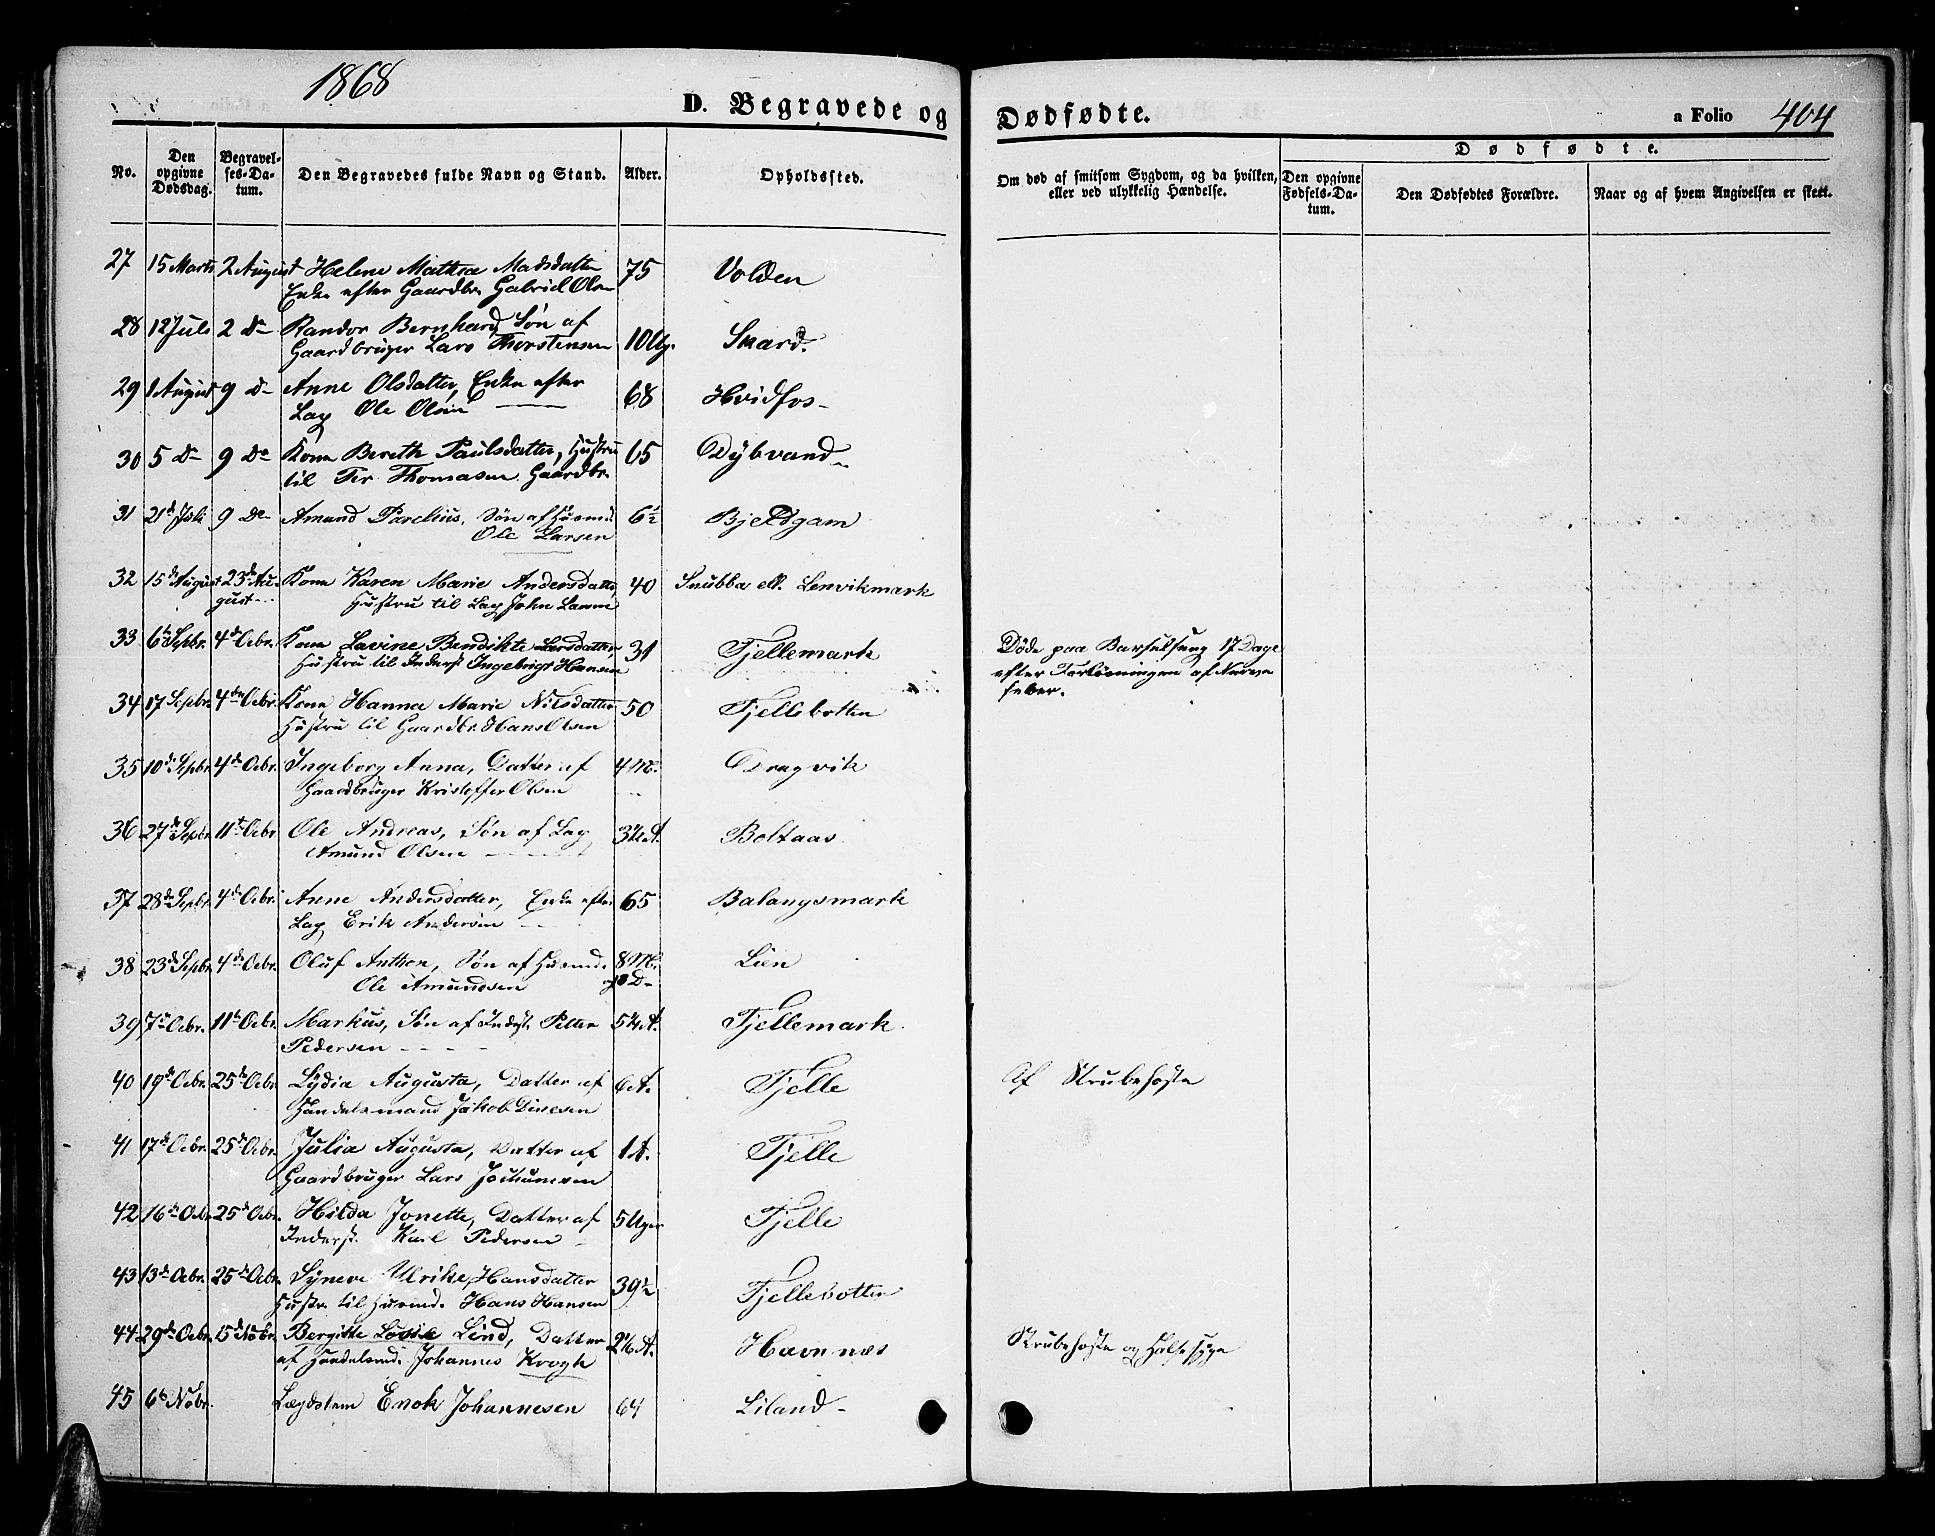 1868
D. Begravede og Dødfødte.
a Folio 404
No.
Den opgivne Dødsdag.
Begravelses-Datum.
Den Begravedes fulde Navn og Stand.
Alder.
Opholdssted.
Om død af smitsom Sygdom, og da hvilken, eller ved ulykkelig Hændelse.
Dødfødte.
Den opgivne Fødsels-Datum.
Den Dødfødtes Forældre.
Naar og af hvem Angivelsen er skeet.
27 15 Marts 2 August Helene Mathea Madsdatter 75 Volden
Enke efter Gaardbr. Gabriel Olsen
28 12 Juli 2 D Randor Bernhard Søn af
Gaardbruger Lars Thorstensen 10 Ug. Skard.
29 1 August 9 D Anne Olsdatter, Enke efter 68 Hvidfos
Læg Ole Olsen
30 5 D 9 D Kone Bereth Paulsdatter, Hustru 65 Dybvand
til Per Thomasen Gaardbr.
31 21 Juli 9 D Amund Parelius, Søn af Husmd. 6½ Bjeldgam
Ole Larsen
32 15 August 23 August Kone Karen Marie Andersdatter, 40 Snubba ell. Lenvikmark
Hustru til Læg John Larsen
33 6 Sepbr. 4 Ocbr. Kone Lavine Bendikte Larsdatter, 31 Fjellemark Døde paa Barselseng 17 Dage
Hustru til Inderst Ingebrigt Hansen efter Forløsningen af Nerve
feber.
34 17 Sepbr. 4 Ocbr. Kone Hanna Marie Nilsdatter 50 Fjellebotten
Hustru til Gaardbr. Hans Olsen
35 10 Sepbr. 4 Ocbr. Ingeborg Anna, Datter af 4 M. Dragvik
Gaardbruger Kristoffer Olsen
36 27 Sepbr. 11 Ocbr. Ole Andreas, Søn af Læg 3½ A. Boltaas
Amund Olsen
37 28 Sepbr. 4 Ocbr. Anne Andersdatter, Enke efter 65 Balangsmark
Læg Erik Andersen
38 23 Sepbr. 4 Ocbr. Oluf Anthon, Søn af Husmd. 8 M. Lien
Ole Amundsen
39 7 Ocbr. 11 Ocbr. Markus, Søn af Inderst. Petter Fjellemark
Pedersen
40 19 Ocbr. 25 Ocbr. Lydia Augusta, Datter af 6 A. Fjelle Af Strubehoste
Handelsmand Jakob Dinesen
41 17 Ocbr. 25 Ocbr. Julia Augusta, Datter af 1 A. Fjelle
Gaardbruger Lars Jochumsen
42 16 Ocbr. 25 Ocbr. Hilda Jonette, Datter af 5 Uger Fjelle
Inderst. Karl Pedersen
43 13 Ocbr. 25 Ocbr. Synere Ulrike Hansdatter 39½ Fjellebotten
Hustr. til Husmd. Hans Hansen
44 29 Ocbr. 15 Nobr. Bergitte Lovise Lind, Datter Havnnæs Strubehoste og Halsesyge
af Handelsmd. Johannes Krogh
45 6 Nobr. Lægdslem Enok Johannesen 64 Liland